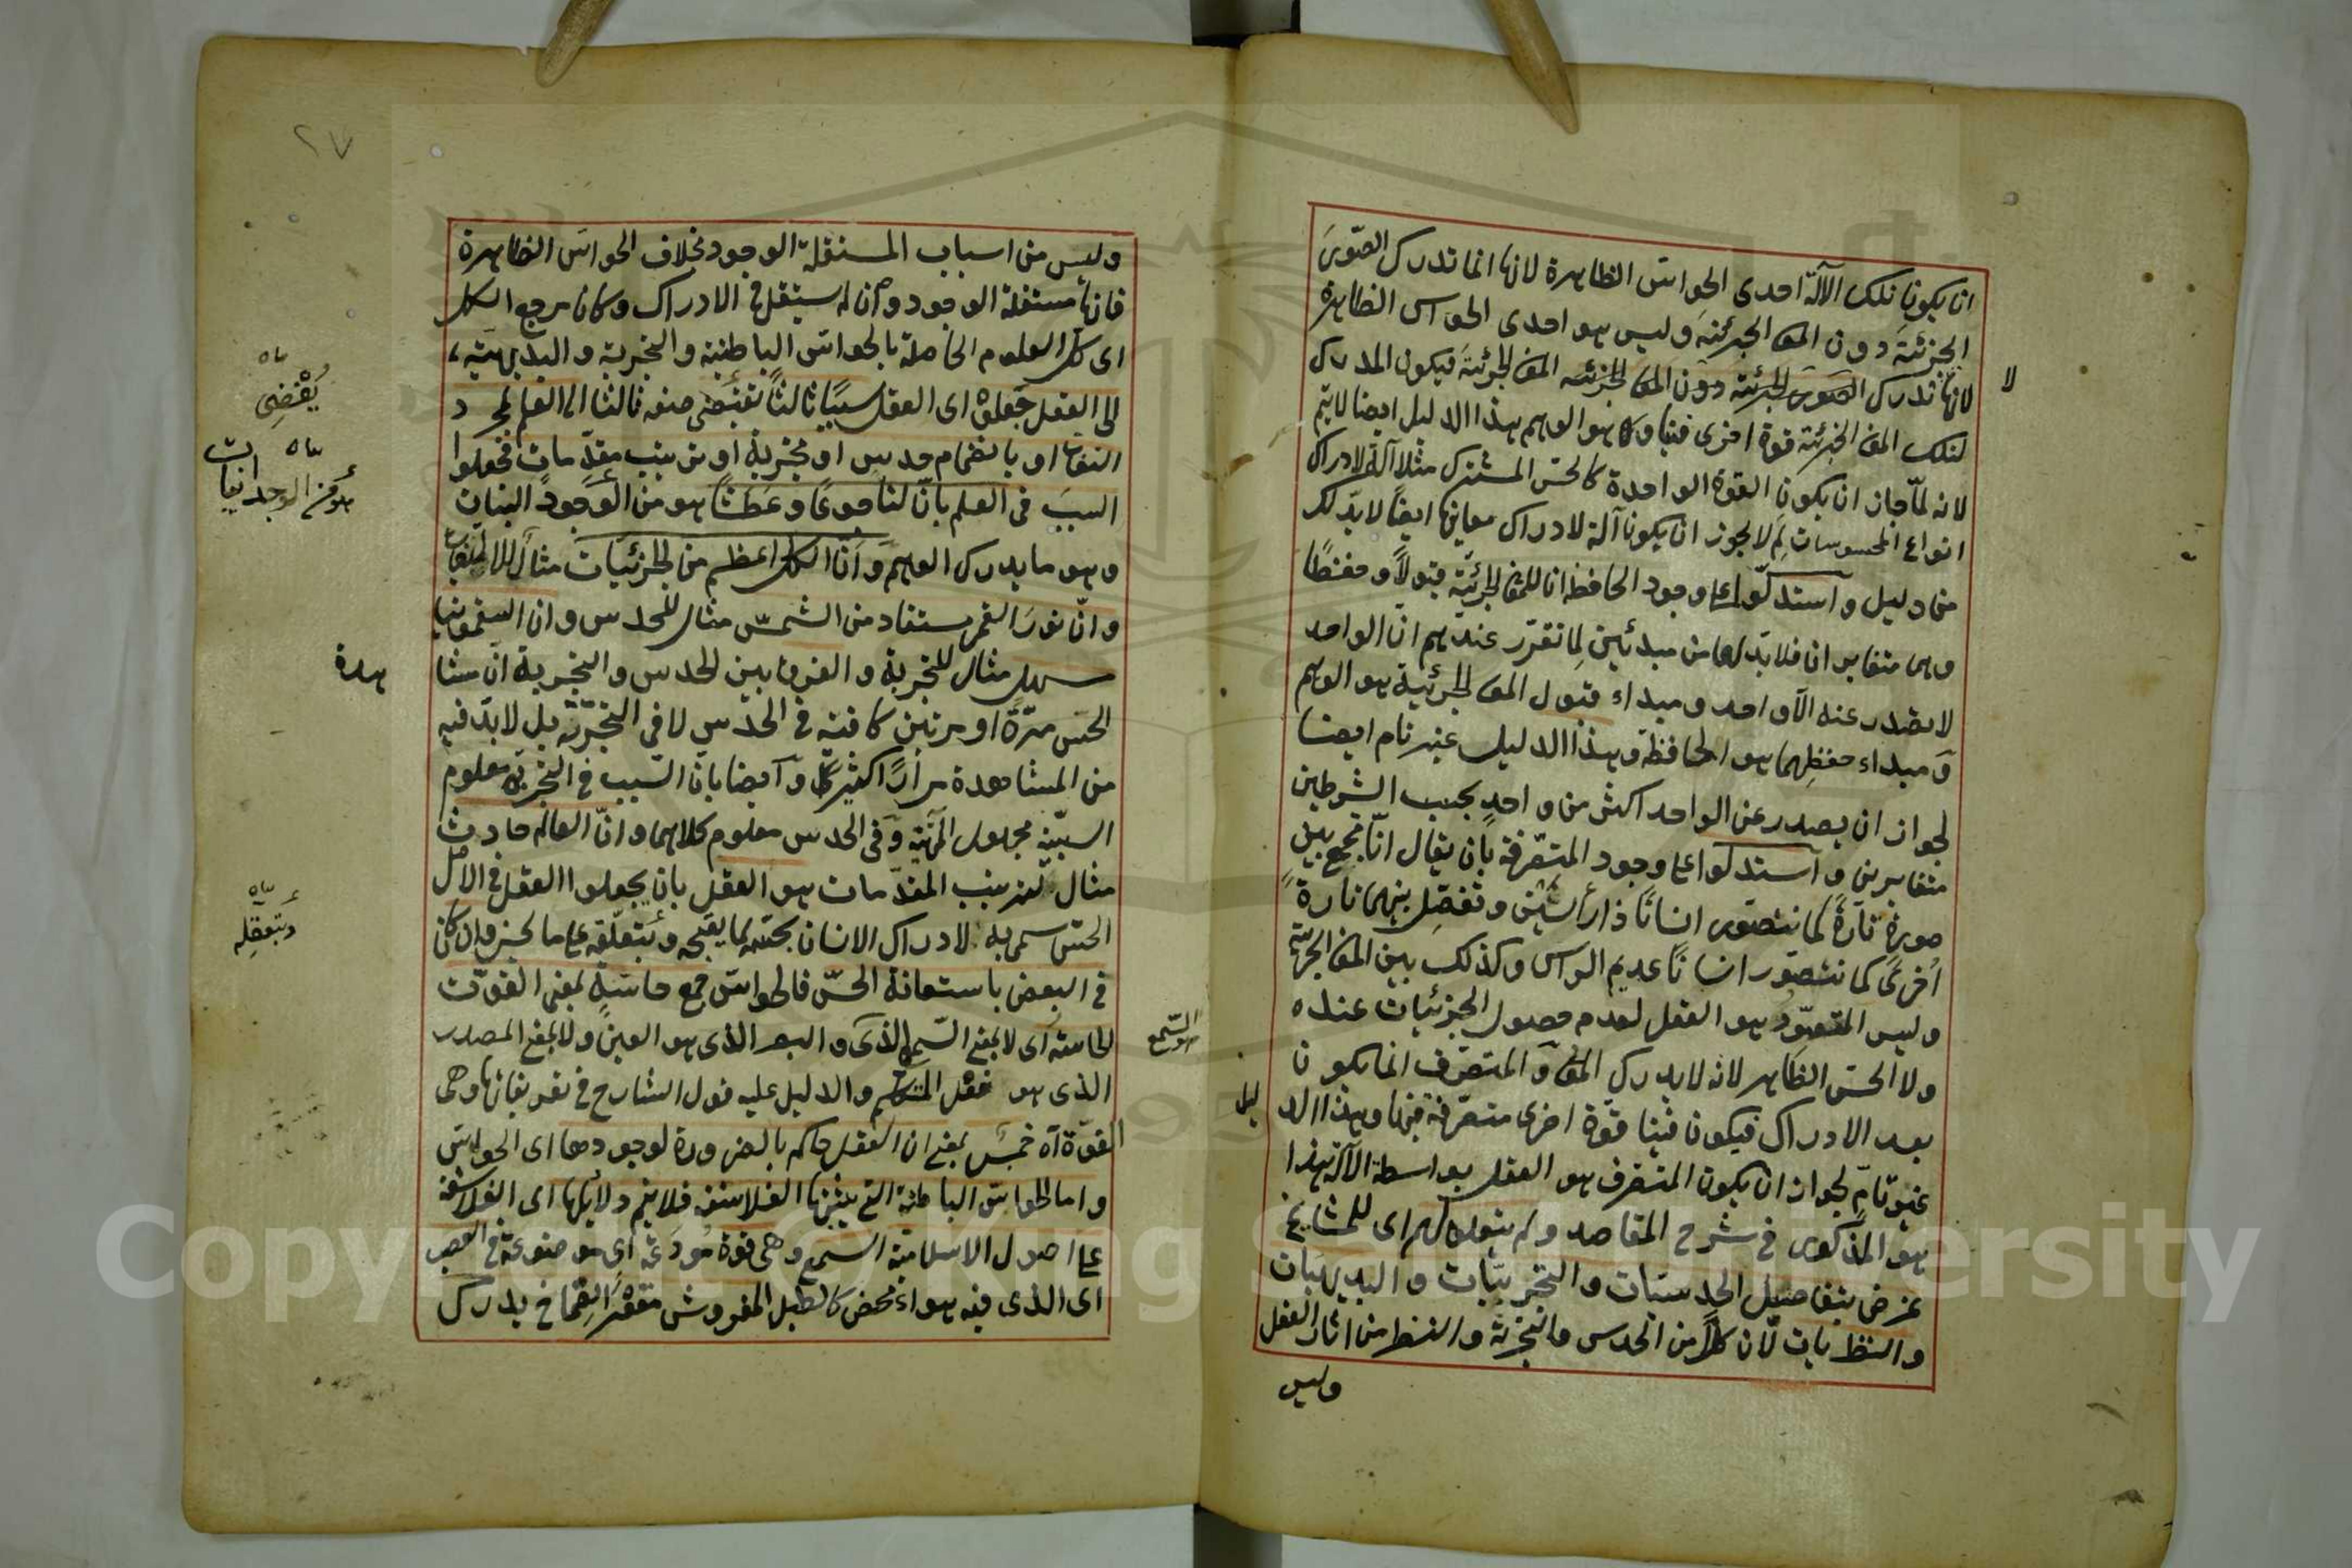 ان يكون تلك الآلة احدى الحواس الظاهرة لانها انما تدرك الصور
الجزئية دون المعا الجزئية وليس هو احدى الحواس الظاهرة
لانها تدرك الصور الجزئية دون المعا الجزئية المعا الجزئية فيكون المدرك
لا
لتلك المعا الجزئية قوة اخرى فينا وكا هو الوهم هذا الدليل ايضا لا يتم
لانه لما جاز ان يكون القوة الواحدة كالحس المشترك مثلا آلة لادراك
انواع المحسوسات لم لا يجوز ان يكون آلة لادراك معانيها ايضا لا بد لك
من دليل واستدلوا على وجود الحافظ ان للمعا الجزئية قبولا وحفظا
وهما متغايران فلا بد لهما من مبدئين لما تقرر عندهم ان الواحد
لا يصدر عنه الا واحد ومبداء قبول المعا الجزئية هو الوهم
ومبداء حفظهما هو الحافظة وهذا الدليل غير تام ايضا
لجواز ان يصدر عن الواحد اكثر من واحد بحسب الشرطين
متغايرين واستدلوا على وجود المتصرفة بان يقال انا نجمع بين
صورة تارة كما نتصور انسانا ذا رأسين وتفصل بينهما تارة
اخرى كما نتصور انسانا عديم الراس وكذلك بين المعا الجزئية
وليس المتصور هو العقل لعدم حصول الجزئيات عنده
ولا الحس الظاهر لانه لا يدرك المعا والمتصرف انما يكون
بعد الادراك فيكون فينا قوة اخرى متصرفة فيها وهذا الد
ليل
غير تام لجواز ان يكون المتصرف هو العقل بواسطة الآلة هذا
هو المذكور في شرح المقاصد ولم يتعلق لهم اى للمشايخ
غرض بتفاصيل الحدسيات والتجربيات والبديهيات
والنظريات لان كلا من الحدس والتجربة والنظر من اثار العقل
وليس
٢٧
وليس من اسباب المستقلة الوجود بخلاف الحواس الظاهرة
فانها مستقلة الوجود وان لم يستقل في الادراك وكان مرجع الكل
اى كل العلوم الحاصلة بالحواس الباطنية والتجربة والبديهية
الى العقل جعلوه اى العقل سببا ثالثا تقتضى صنعه ثالثا الى العلم بمجرد
يقتضى
التفات او بانضمام حدس او تجربة او ترتيب مقدمات فجعلوا
السبب في العلم بان لنا جوعا وعطشا هو من الوجود البنيات
هو من الوجدانيات
وهو ما يدرك الوهم وان الكل اعظم من الجزئيات مثال للالتفات
وان نور القمر مستفاد من الشمس مثال للحدس وان السقمونيا
مسهل مثال للتجربة والفرق بين الحدس والتجربة ان مشا
هدة
الحس مرة او مرتين كافية في الحدس لا في التجربة بل لا بد فيه
من المشاهدة مرارا كثيرة وايضا بان السبب في التجربة معلوم
السببية مجهول المهية وفي الحدس معلوم كلاهما وان العالم حادث
مثال لترتيب المقدمات هو العقل بان يجعلوا العقل في الاصل
الحس سمى به لادراك الانسان بحسه لما يقبحه ويتعلقه على ما يحسنه وان كان
ويتعقله
في البعض باستعانة الحس فالحواس جمع حاسة بمعنى القوت
الحاسة اى لا بمعنى السمع الذى والبصر الذى هو العين ولا بمعنى المصدر
هو السمع
الذى هو فعل المتكلم والدليل عليه قول الشارح في تعريفاتها وهى
القوة اه خمس بمعنى ان العقل حاكم بالضرورة لوجودها اى الحواس
واما الحواس الباطنة التى يثبتها الفلاسفة فلا يتم دلائلها اى الفلاسفة
على اصول الاسلامية السمع وهى قوة مودعة اى موضوعة في العصب
اى الذى فيه هواء محض كالطبل المفروش مقعر الصماخ يدرك